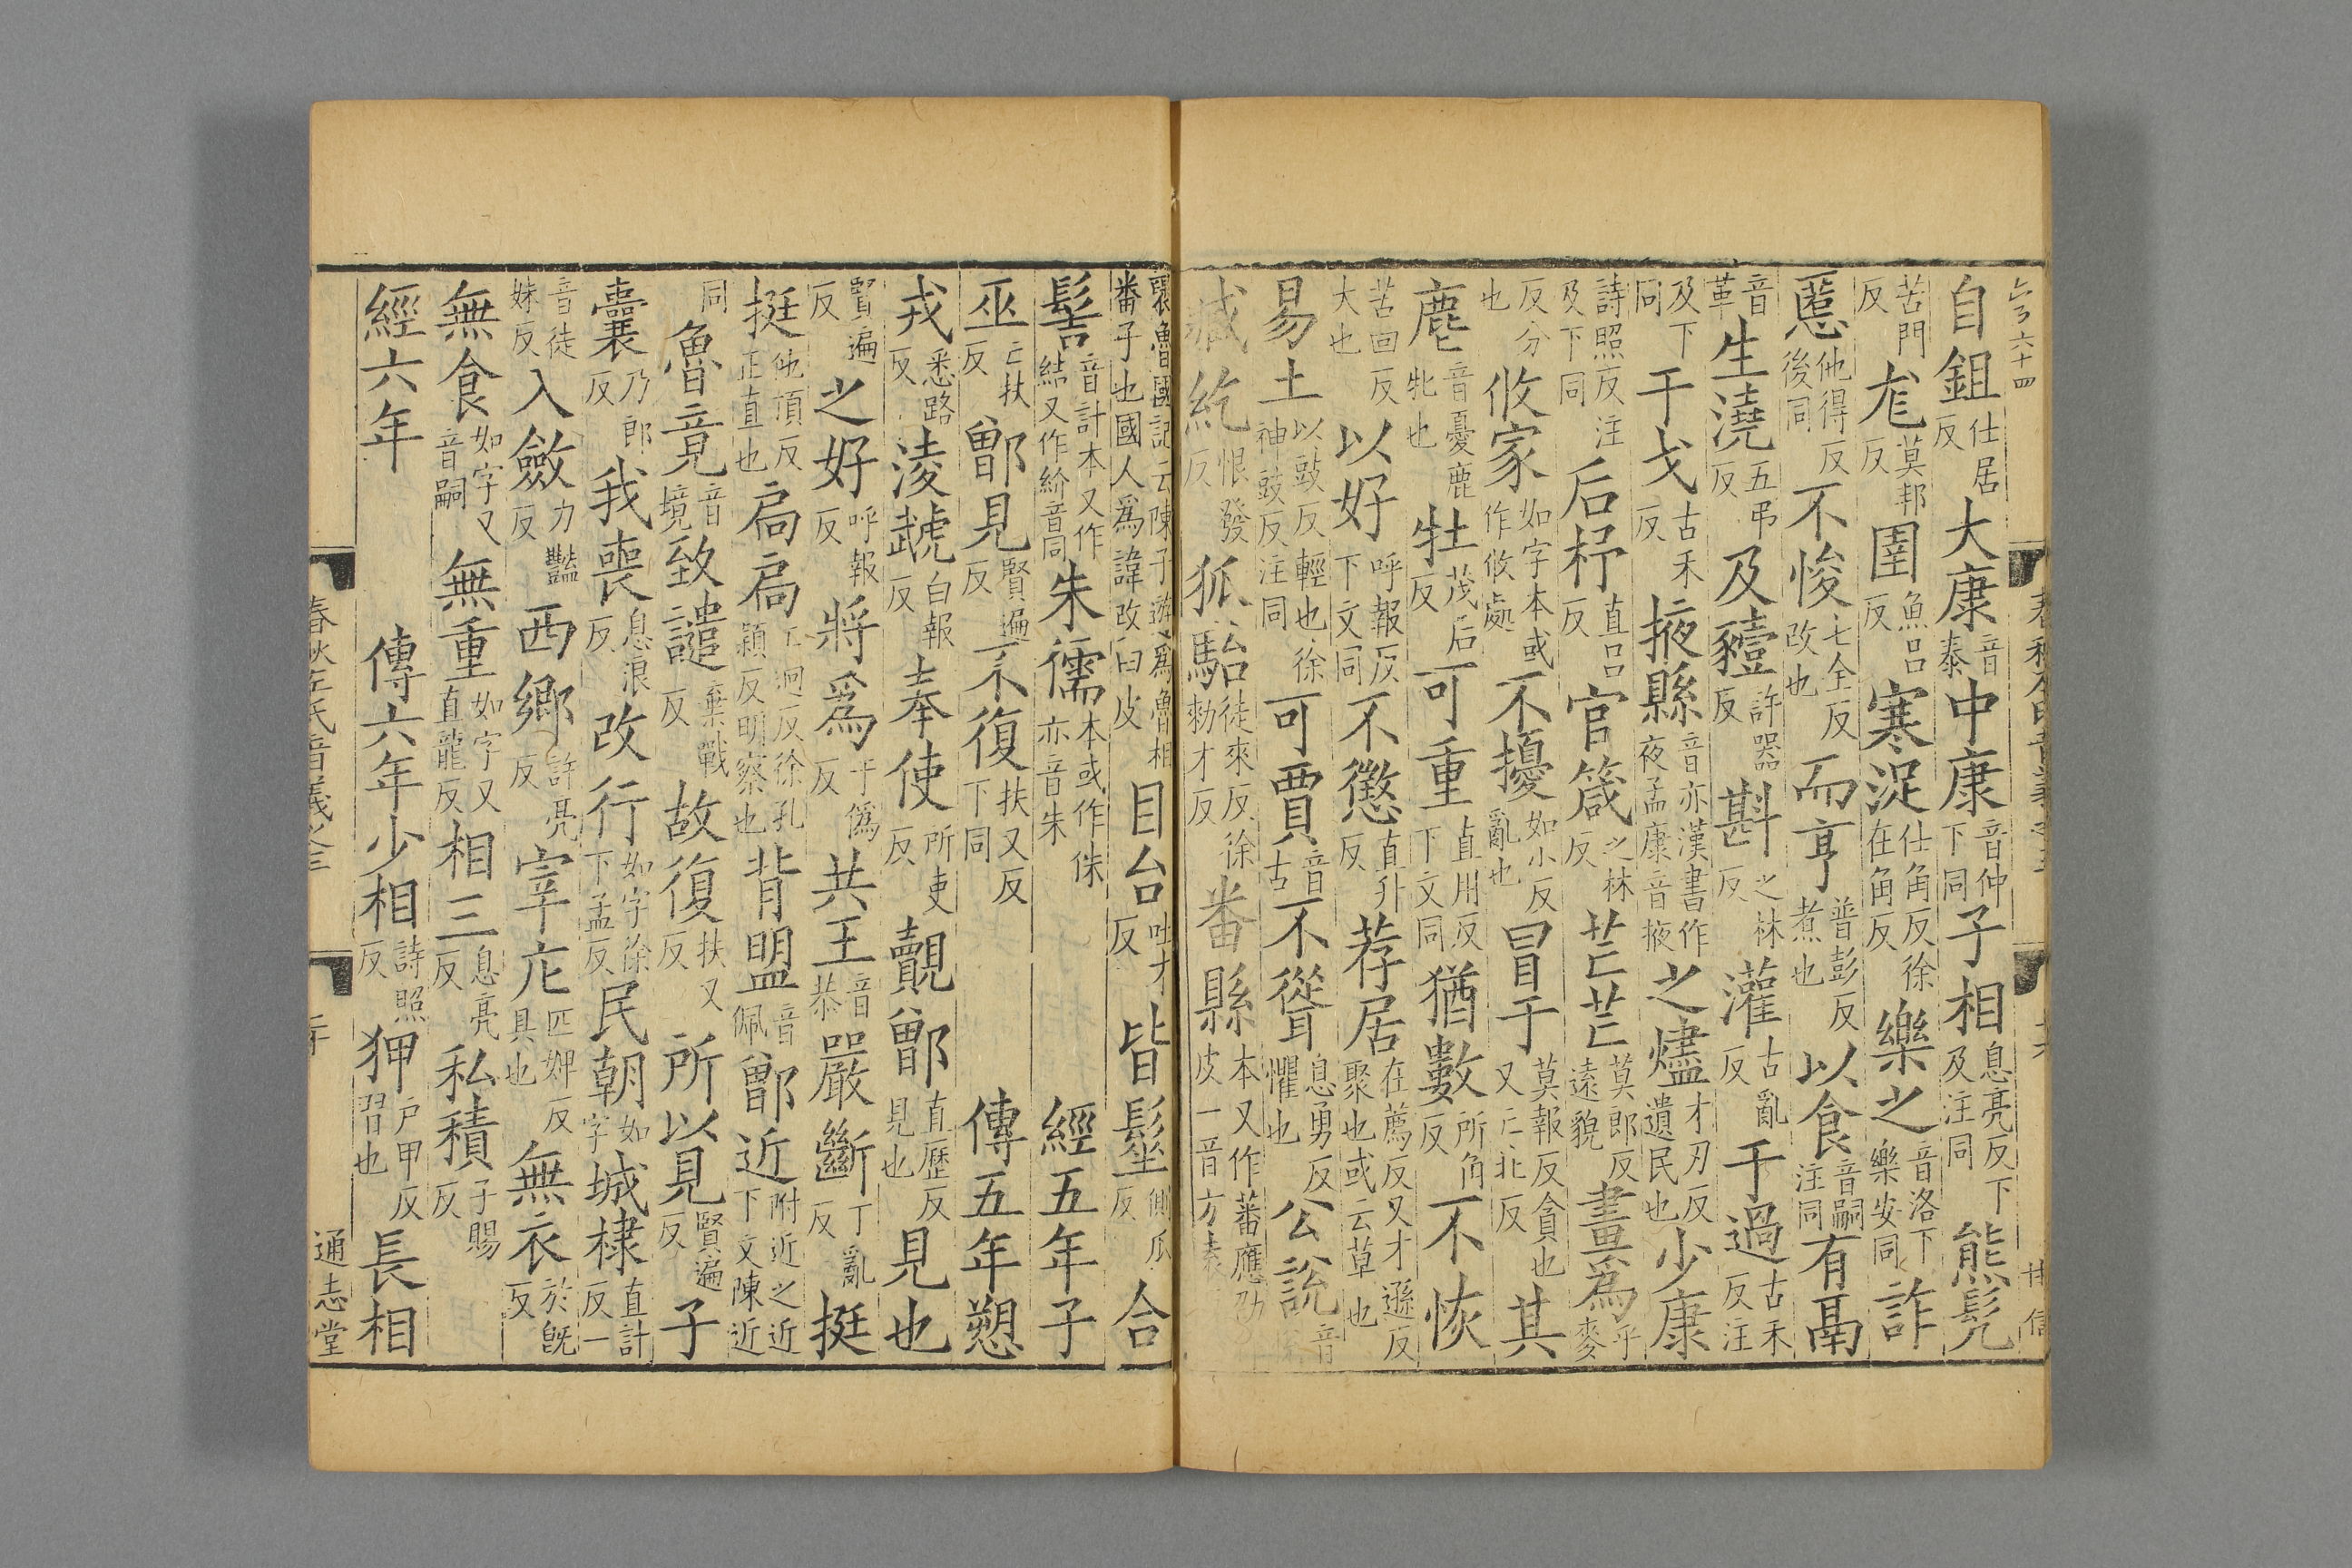 六十四
自鉏仕居反大康音泰中康音仲下同子相息亮反下及注同熊髡
苦門反尨莫邦反圉魚呂反寒浞仕角反徐在角反樂之音洛下樂安同詐
慝他得反後同不悛七全反改也而亨普彭反煮也以食音嗣注同有鬲
音革生澆五弔反及豷許器反斟之林反灌古亂反于過古禾反注
及下同于戈古禾反掖縣音亦漢書作夜孟康音掖之燼才刃反遺民也少康
詩照反注及下同后杼直呂反官箴之林反芒芒莫郎反遠貌畫爲乎麥
反分也攸家如字本或作攸處不擾如小反亂也冒于莫報反貪也又亡北反其
麀音憂鹿牝也牡茂后反可重直用反下文同猶數所角反不恢
苦回反大也以好呼報反下文同不懲直升反荐居在薦反又才遜反聚也或云草也
易土以豉反輕也徐神豉反注同可賈音古不聳息勇反懼也公說音
臧紇恨發反狐駘徒來反徐勑才反番縣本又作蕃應劭皮一音方袁
襄魯國記云陳子游爲魯相番子也國人爲諱改曰皮目台吐才反皆髽側瓜反合
髻音計本又作結又作紒音同朱儒本或作侏亦音朱經五年子
巫亡扶反鄫見賢遍反不復扶又反下同傳五年愬
戎悉路反淩虣白報反奉使所吏反覿鄫直歷反見也見也
賢遍反之好呼報反將爲于僞反共王音恭嚴斷丁亂反挺
挺他頂反正直也扃扃工迥反徐孔穎反明察也背盟音佩鄫近附近之近下文陳近
同魯竟音境致譴棄戰反故復扶又反所以見賢遍反子
囊乃郎反我喪息浪反改行如字徐下孟反民朝如字城棣直計反一
音徒妹反入斂力豔反西鄉許亮反宰庀匹婢反具也無衣於旣反
無食如字又音嗣無重如字又直龍反相三息亮反私積子賜反
經六年傳六年少相詩照反狎戶甲反習也長相
春秋左氏音義之三
通志堂